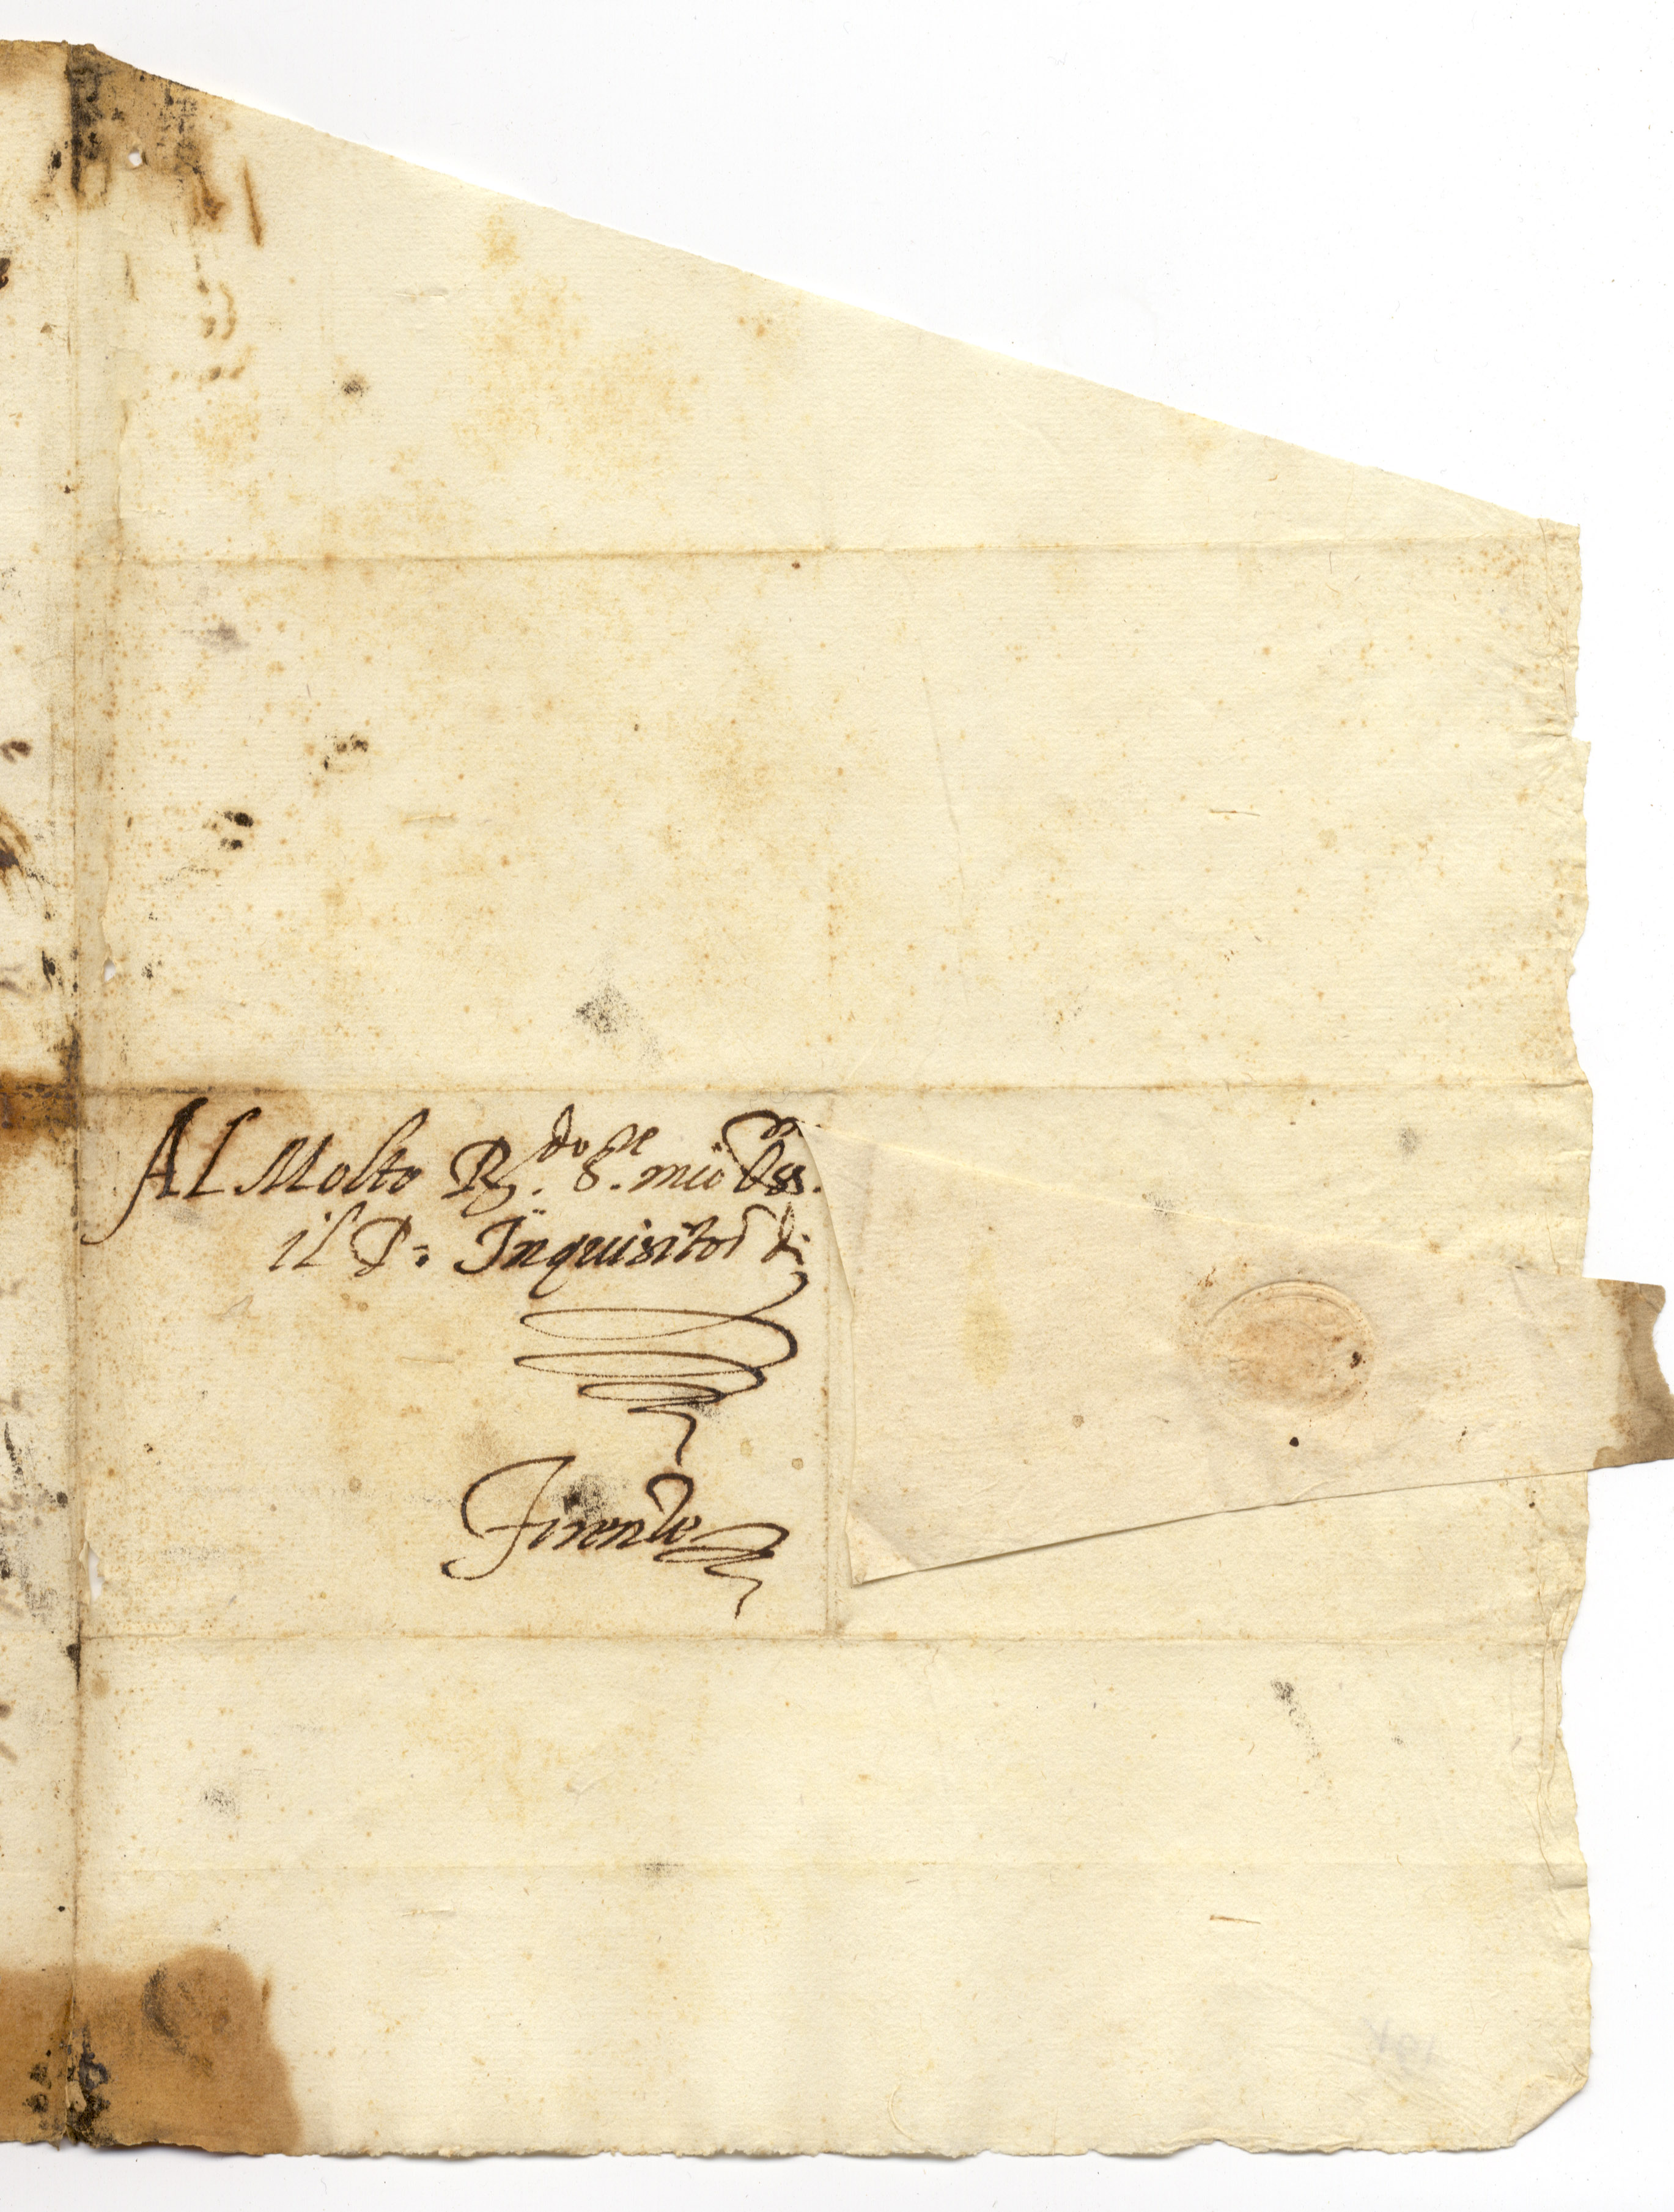 Al Molto R.do P.re mio Oss.mo
il P. Inquisitor di
Firenze